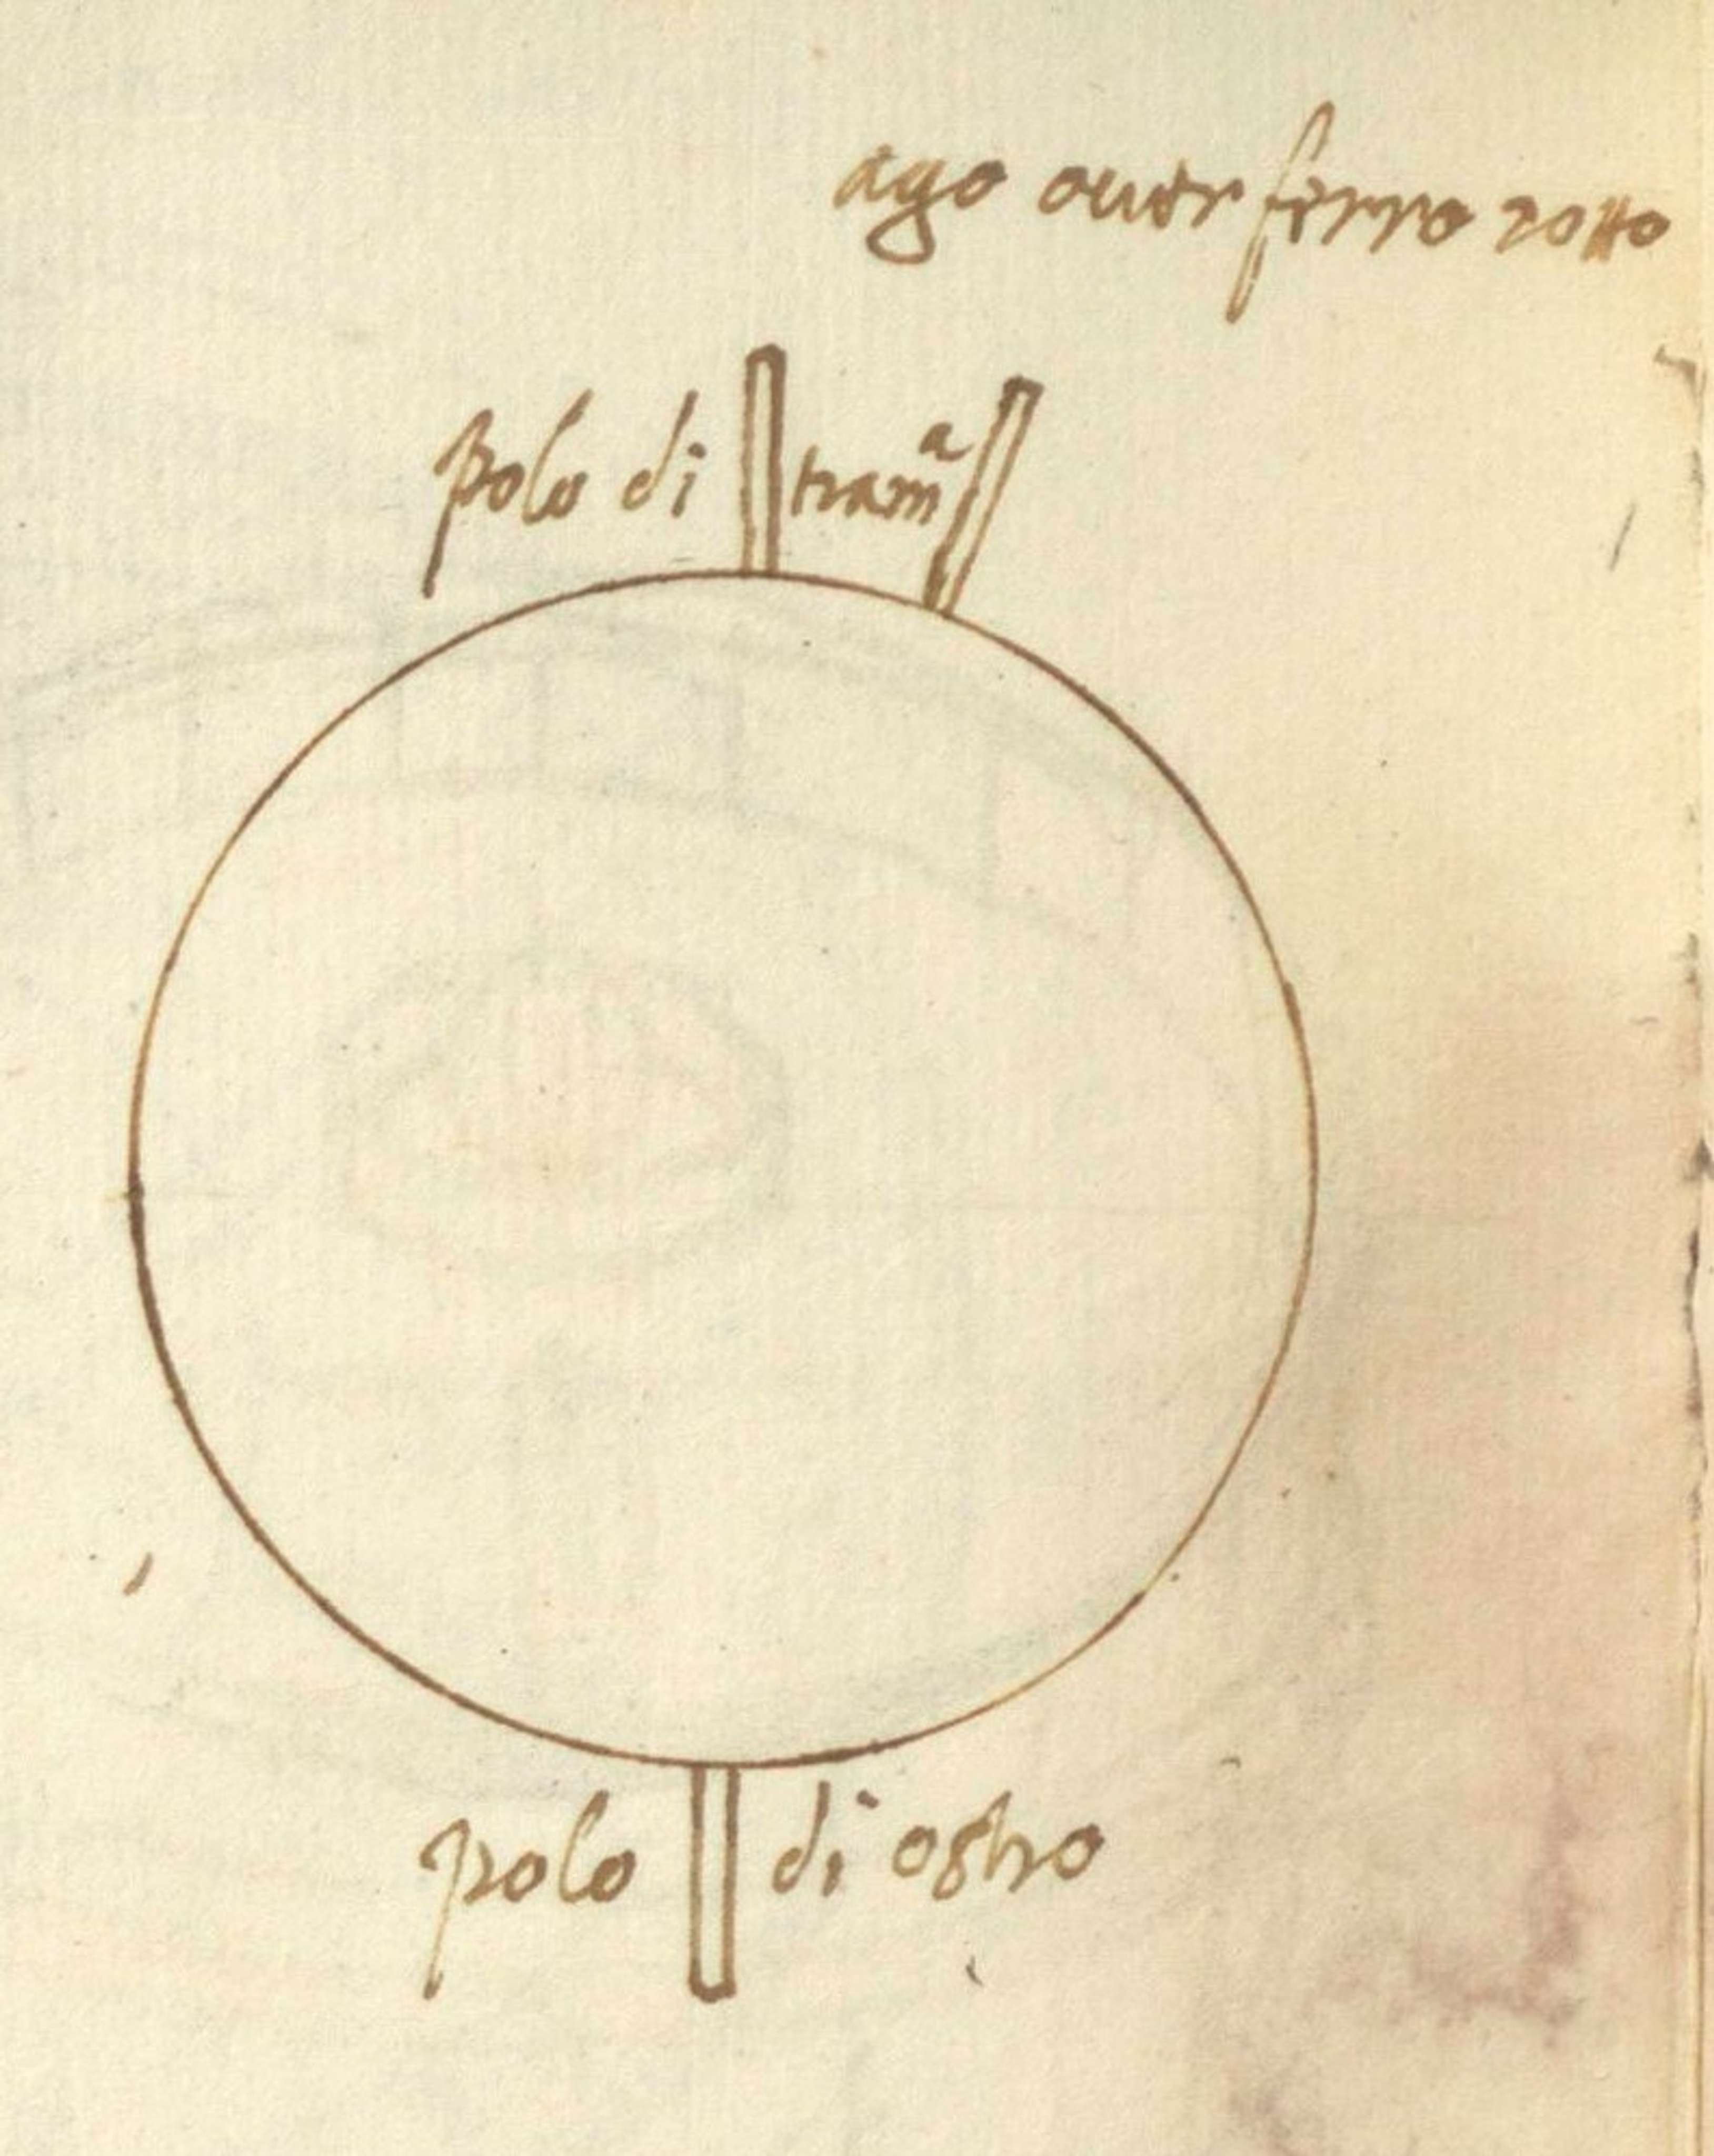 ago ouer ferro rotto
polo di tramᵃ
polo di ostro